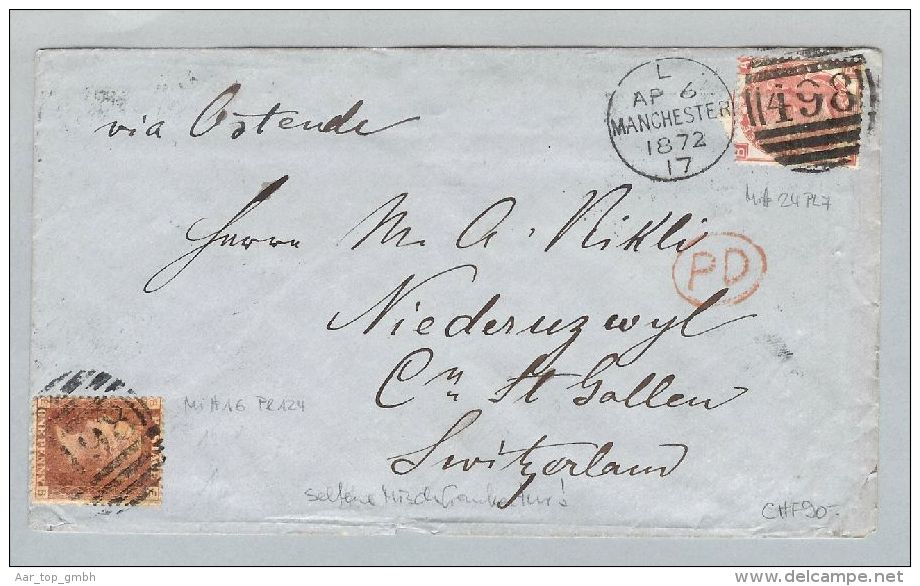 via Ostende
L
AP 6
MANCHESTER
1872
17
498
Mi# 24 PL7
Herrn M. A. Nikli
PD
Niederuzwyl
Cn St Gallen
Switzerland
Mi#16 PL124
498
ONE PENNY
seltene Mischfrankatur!
CHF 90.-
Aar_top_gmbh
www.delcampe.net